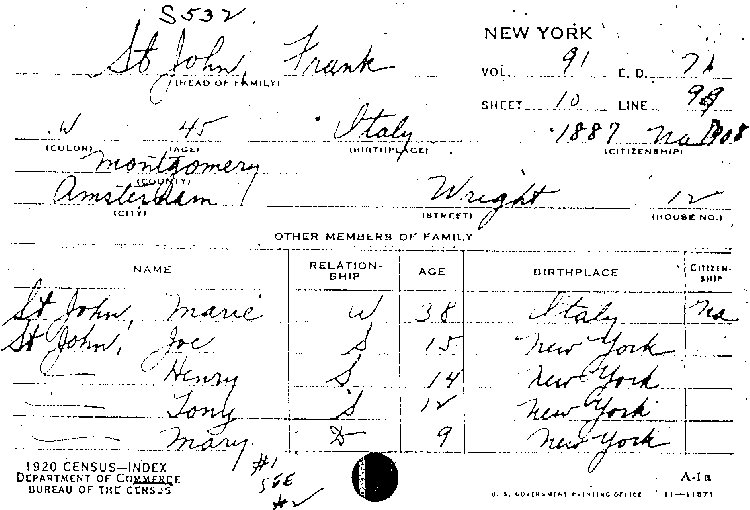 S532
NEW YORK
St John, Frank
(HEAD OF FAMILY)
VOL. 91 E. D. 71
SHEET 10 LINE
W 45 Italy 1887 Na 1908
(COLOR) (AGE) (BIRTHPLACE) (CITIZENSHIP)
Montgomery
(COUNTY)
Amsterdam Wright 12
(CITY) (STREET) (HOUSE NO.)
OTHER MEMBERS OF FAMILY
NAME RELATION-SHIP AGE BIRTHPLACE CITIZEN-SHIP
St John, Marie W 38 Italy Na
St John, Joe S 15 New York
— Henry S 14 New York
— Tony S 12 New York
— Mary D 9 New York
1920 CENSUS—INDEX
DEPARTMENT OF COMMERCE
BUREAU OF THE CENSUS
#1
SEE
#2
A-1a
U. S. GOVERNMENT PRINTING OFFICE 11—11871